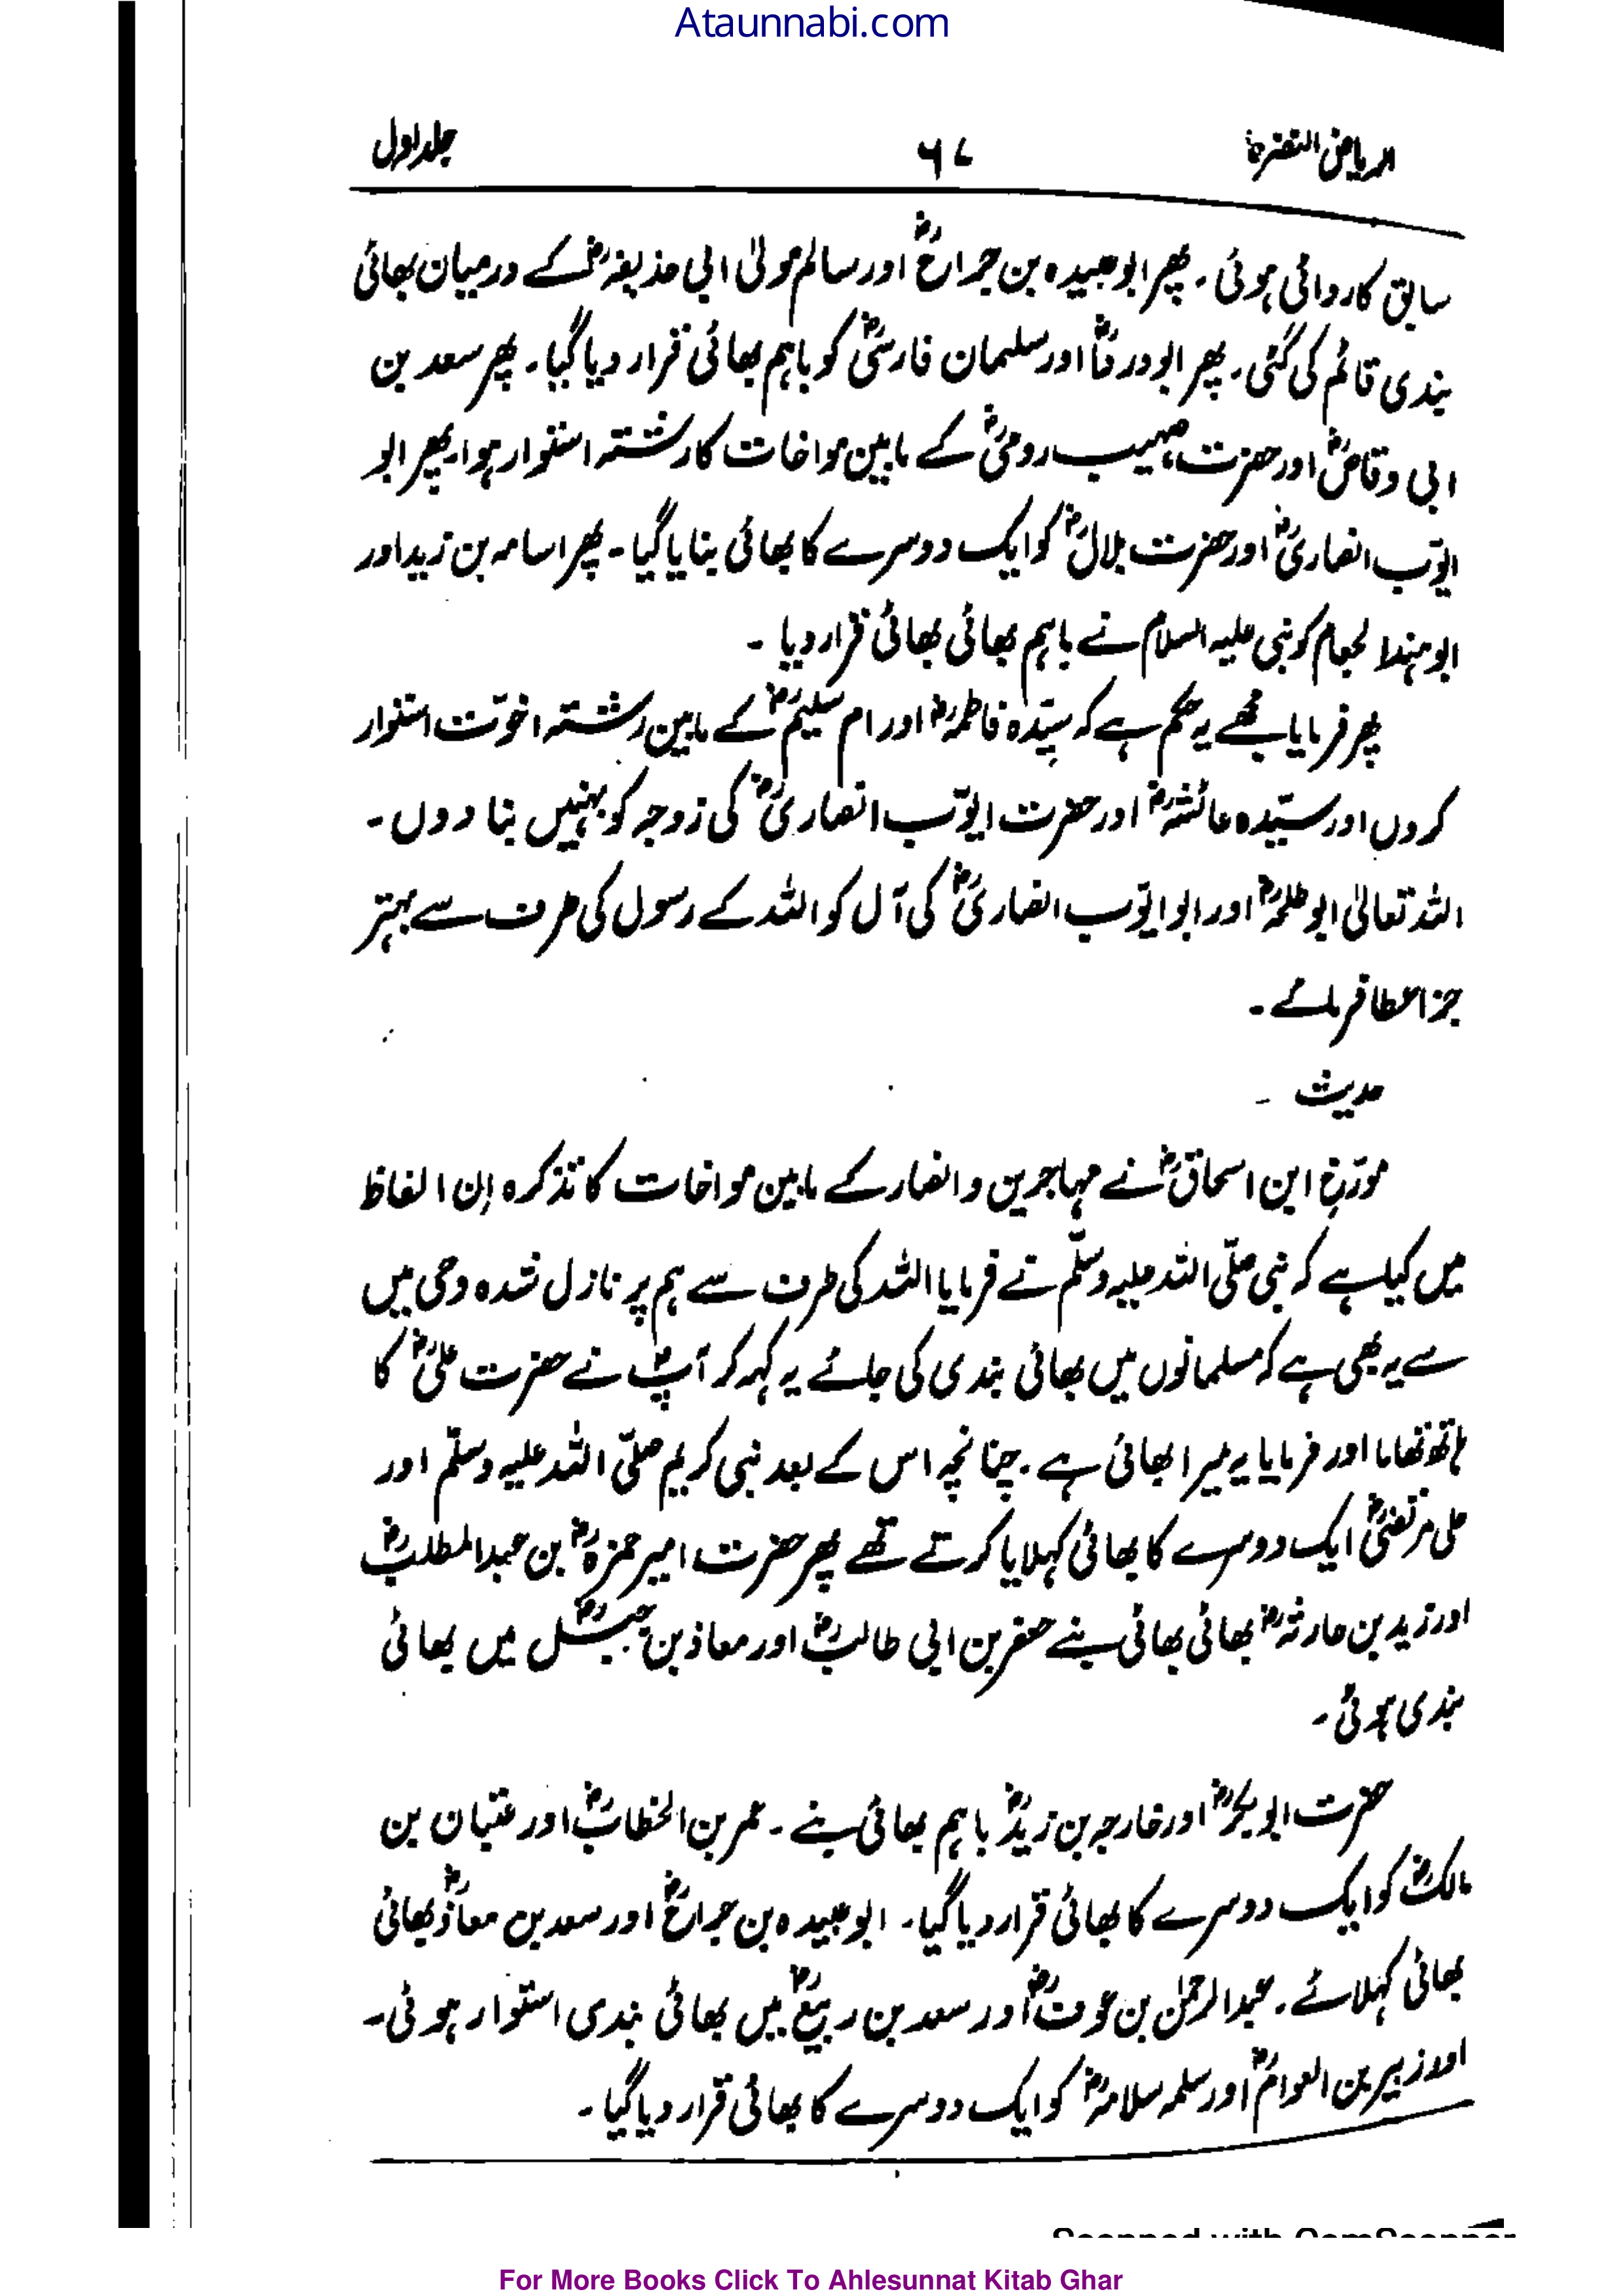 Ataunnabi.com
الریاض النضرہ ۶۷ جلد اول
سابق کاروائی ہوئی ۔ پھر ابو عبیدہ بن جراحؓ اور سالم مولیٰ ابی حذیفہؓ کے درمیان بھائی
بندی قائم کی گئی ۔ پھر ابودرداؓ اور سلیمان فارسیؓ کو باہم بھائی قرار دیا گیا ۔ پھر سعد بن
ابی وقاصؓ اور حضرت صہیب رومیؓ کے مابین مواخات کا رشتہ استوار ہوا، پھر ابو
ایوّب انصاریؓ اور حضرت بلالؓ کو ایک دوسرے کا بھائی بنایا گیا ۔ پھر اسامہ بن زید اور
ابو ہندا لحجام کو نبی علیہ السلام نے باہم بھائی بھائی قرار دیا ۔
پھر فرمایا مجھے یہ حکم ہے کہ سیّدہ فاطمہؓ اور ام سلیمؓ کے مابین رشتہ اخوّت استوار
کروں اور سیّدہ عائشہؓ اور حضرت ایوّب انصاریؓ کی زوجہ کو بہنیں بنا دوں ۔
اللہ تعالیٰ ابو طلحہؓ اور ابو ایوّب انصاریؓ کی آل کو اللہ کے رسول کی طرف سے بہتر
جزا عطا فرمائے ۔
حدیث ۔
مورّخ ابن اسحاقؓ نے مہاجرین و انصار کے مابین مواخات کا تذکرہ اِن الفاظ
میں کیا ہے کہ نبی صلّی اللہ علیہ وسلّم نے فرمایا اللہ کی طرف سے ہم پر نازل شدہ وحی میں
سے یہ بھی ہے کہ مسلمانوں میں بھائی بندی کی جائے یہ کہہ کر آپؐ نے حضرت علیؓ کا
ہاتھ تھاما اور فرمایا یہ میرا بھائی ہے ۔ چنانچہ اس کے بعد نبی کریم صلّی اللہ علیہ وسلّم اور
علی مرتضیٰؓ ایک دوسرے کا بھائی کہلایا کرتے تھے پھر حضرت امیر حمزہؓ بن عبدالمطلبؓ
اور زید بن حارثہؓ بھائی بھائی بنے جعفر بن ابی طالبؓ اور معاذ بن جبلؓ میں بھائی
بندی ہوئی ۔
حضرت ابوبکرؓ اور خارجہ بن زیدؓ باہم بھائی بنے ۔ عمر بن الخطابؓ اور عتبان بن
مالکؓ کو ایک دوسرے کا بھائی قرار دیا گیا ۔ ابو عبیدہ بن جراحؓ اور سعد بن معاذؓ بھائی
بھائی کہلائے ۔ عبدالرحمٰن بن عوفؓ اور سعد بن ربیعؓ میں بھائی بندی استوار ہوئی ۔
اور زبیر بن العوامؓ اور سلمہ سلامہؓ کو ایک دوسرے کا بھائی قرار دیا گیا ۔
Scanned with CamScanner
For More Books Click To Ahlesunnat Kitab Ghar